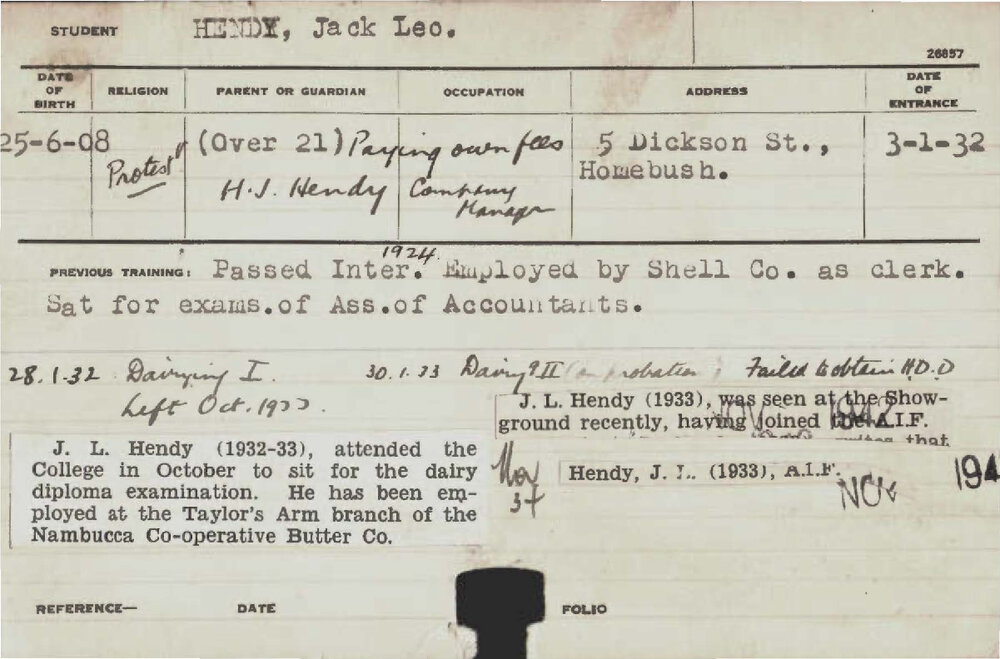 STUDENT HENDY, Jack Leo.
26857
DATE OF BIRTH RELIGION PARENT OR GUARDIAN OCCUPATION ADDRESS DATE OF ENTRANCE
25-6-08 Protest (Over 21) Paying own fees 5 Dickson St., 3-1-32
H.J. Hendy Company Manager Homebush.
1924.
PREVIOUS TRAINING: Passed Inter. Employed by Shell Co. as clerk.
Sat for exams.of Ass.of Accountants.
28.1.32 Dairying I. 30.1.33 Dairyg II (on probation) Failed to obtain H.D.D
Left Oct. 1933.
J. L. Hendy (1933), was seen at the Show-
ground recently, having joined the A.I.F.
that
J. L. Hendy (1932-33), attended the
College in October to sit for the dairy
diploma examination. He has been em-
ployed at the Taylor's Arm branch of the
Nambucca Co-operative Butter Co.
Nov
37
Hendy, J. L. (1933), A.I.F.
NOV 194
REFERENCE— DATE FOLIO